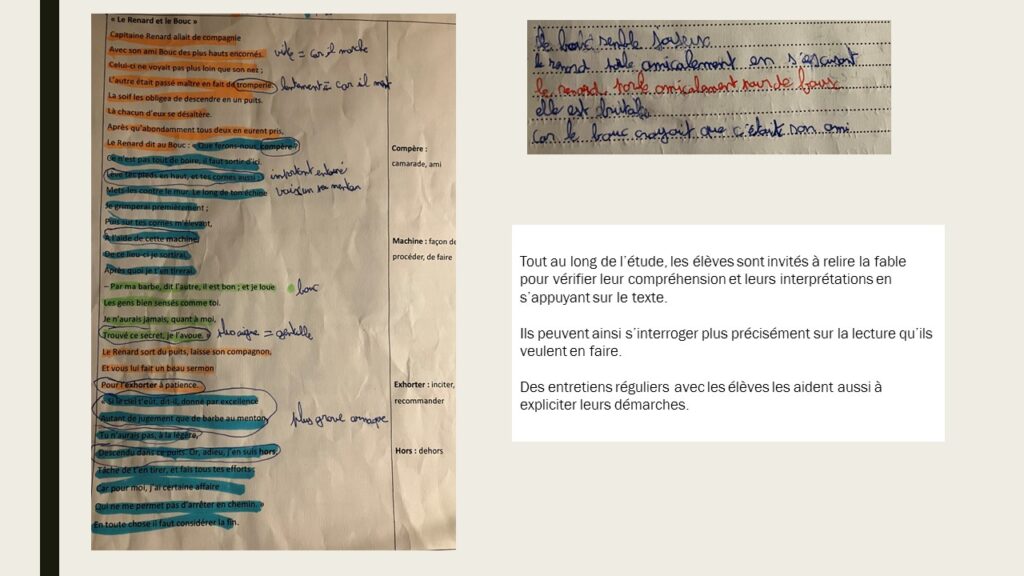 « Le Renard et le Bouc »
Capitaine Renard allait de compagnie
Avec son ami Bouc des plus hauts encornés.
vite = car il marche
Celui-ci ne voyait pas plus loin que son nez ;
L'autre était passé maître en fait de tromperie.
lentement = car il ment
La soif les obligea de descendre en un puits.
Là chacun d'eux se désaltère.
Après qu'abondamment tous deux en eurent pris,
Le Renard dit au Bouc : « Que ferons-nous, compère ?
Ce n'est pas tout de boire, il faut sortir d'ici.
Lève tes pieds en haut, et tes cornes aussi :
Mets-les contre le mur. Le long de ton échine
Je grimperai premièrement ;
Puis sur tes cornes m'élevant,
A l'aide de cette machine,
De ce lieu-ci je sortirai,
Après quoi je t'en tirerai.
– Par ma barbe, dit l'autre, il est bon ; et je loue
bouc
Les gens bien sensés comme toi.
Je n'aurais jamais, quant à moi,
Trouvé ce secret, je l'avoue. »
plus aigue = gentille
Le Renard sort du puits, laisse son compagnon,
Et vous lui fait un beau sermon
Pour l'exhorter à patience.
« Si le ciel t'eût, dit-il, donné par excellence
Autant de jugement que de barbe au menton,
plus grave
Tu n'aurais pas, à la légère,
Descendu dans ce puits. Or, adieu, j'en suis hors.
Tâche de t'en tirer, et fais tous tes efforts :
Car pour moi, j'ai certaine affaire
Qui ne me permet pas d'arrêter en chemin. »
En toute chose il faut considérer la fin.
Compère :
camarade, ami
Machine : façon de
procéder, de faire
Exhorter : inciter,
recommander
Hors : dehors
le bouc semble
le renard parle amicalement en s'
le renard parle amicalement
elle est brutale
car le bouc croyait que c'était son ami
Tout au long de l'étude, les élèves sont invités à relire la fable
pour vérifier leur compréhension et leurs interprétations en
s'appuyant sur le texte.
Ils peuvent ainsi s'interroger plus précisément sur la lecture qu'ils
veulent en faire.
Des entretiens réguliers avec les élèves les aident aussi à
expliciter leurs démarches.